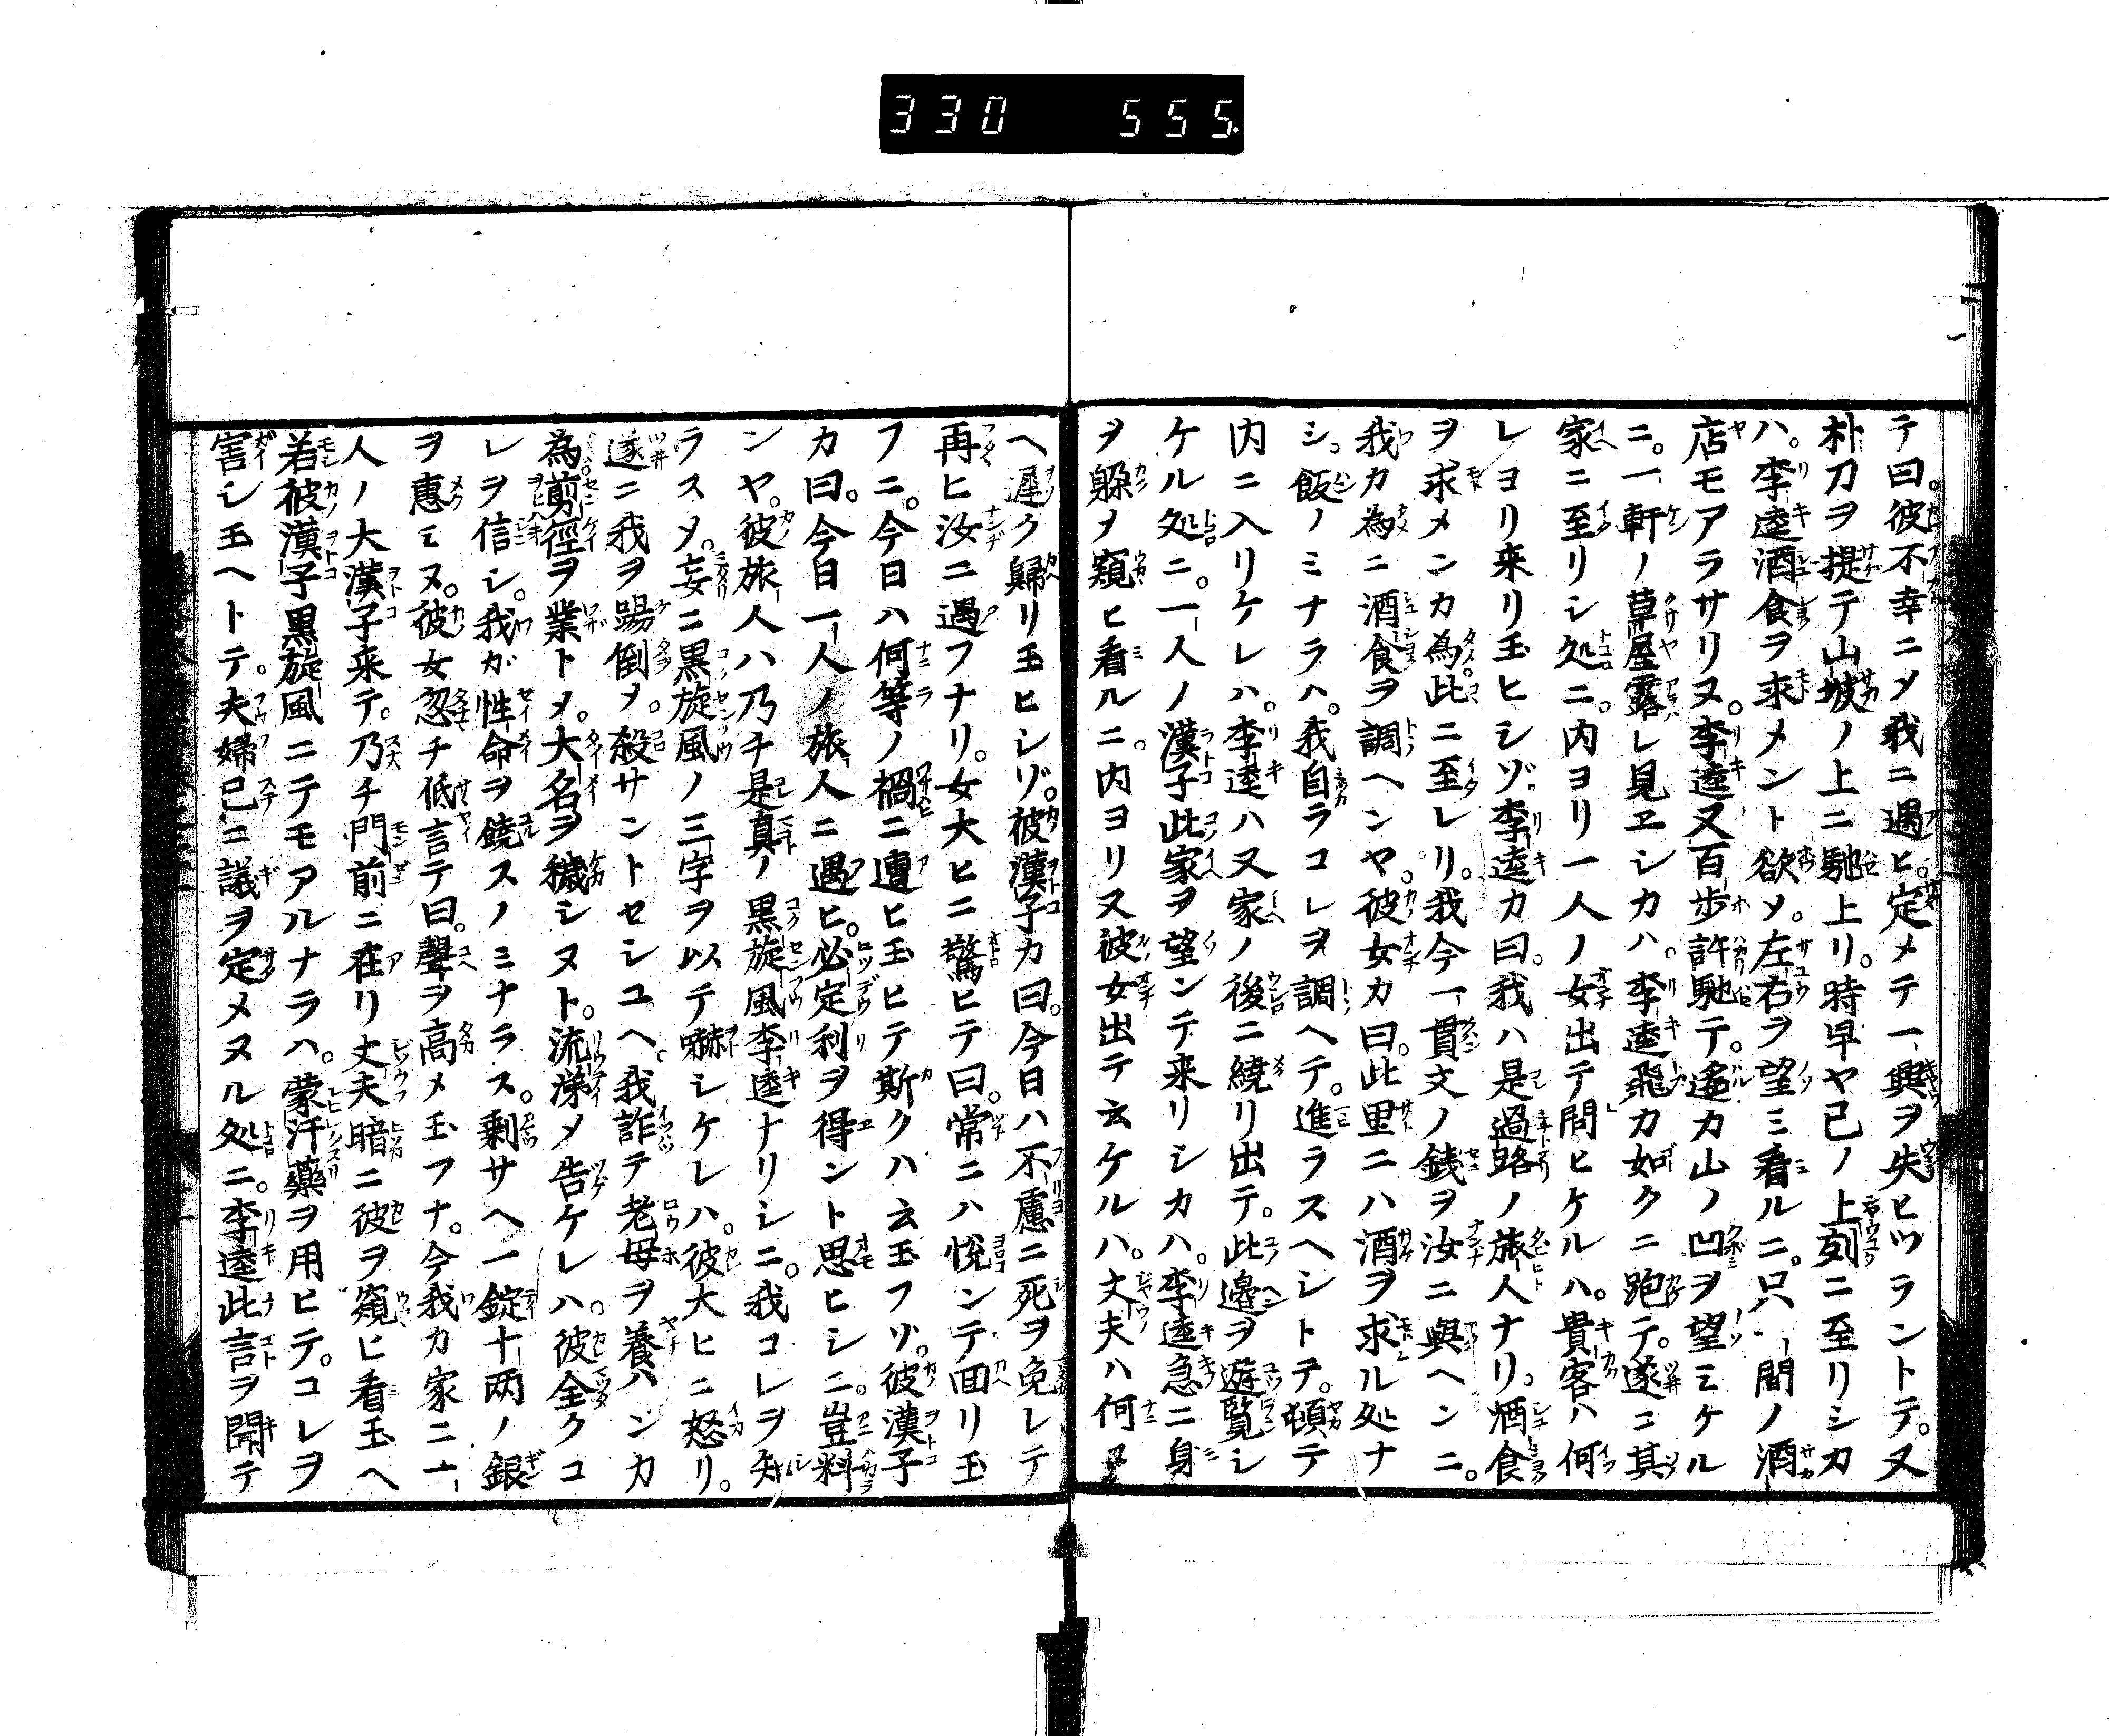 330 555.
テ曰。彼不幸ニメ我ニ遇ヒ。定メテ一興ヲ失ヒツラントテ。又
朴刀ヲ提テ山坡ノ上ニ馳上リ。時早ヤ已ノ上刻ニ至リシカ
ハ。李逵酒食ヲ求メント欲メ。左右ヲ望ミ看ルニ。只一間ノ酒
店モアラサリヌ。李逵又百歩許馳テ。遙カ山ノ凹ヲ望ミケル
ニ。一軒ノ草屋露レ見ヱシカハ。李逵飛カ如クニ跑テ。遂ニ其
家ニ至リシ処ニ。内ヨリ一人ノ女出テ問ヒケルハ。貴客ハ何
レヨリ来リ玉ヒシゾ。李逵カ曰。我ハ是過路ノ旅人ナリ。酒食
ヲ求メンカ為此ニ至レリ。我今一貫文ノ銭ヲ汝ニ與ヘンニ。
我カ為ニ酒食ヲ調ヘンヤ。彼女カ曰。此里ニハ酒ヲ求ル処ナ
シ。飯ノミナラハ。我自ラコレヲ調ヘテ。進ラスヘシトテ。頓テ
内ニ入リケレハ。李逵ハ又家ノ後ニ繞リ出テ。此邉ヲ遊覧シ
ケル処ニ。一人ノ漢子此家ヲ望ンテ来リシカハ。李逵急ニ身
ヲ躱メ窺ヒ看ルニ。内ヨリ又彼女出テ云ケルハ。丈夫ハ何ヌ
ヘ遲ク歸リ玉ヒシゾ。彼漢子カ曰。今日ハ不慮ニ死ヲ免レテ
再ヒ汝ニ遇フナリ。女大ヒニ驚ヒテ曰。常ニハ悦ンテ回リ玉
フニ。今日ハ何等ノ禍ニ遭ヒ玉ヒテ斯クハ云玉フソ。彼漢子
カ曰。今日一人ノ旅人ニ遇ヒ。必定利ヲ得ント思ヒシニ。豈料
ンヤ。彼旅人ハ乃チ是真ノ黒旋風李逵ナリシニ。我コレヲ知
ラスメ。妄ニ黒旋風ノ三字ヲ以テ嚇シケレハ。彼大ヒニ怒リ。
遂ニ我ヲ踢倒メ。殺サントセシユヘ。我詐テ老母ヲ養ハンカ
為剪徑ヲ業トメ。大名ヲ穢シヌト。流涕メ告ケレハ。彼全クコ
レヲ信シ。我ガ性命ヲ饒スノミナラス。剰サヘ一錠十两ノ銀
ヲ惠ミヌ。彼女忽チ低言テ曰。聲ヲ高メ玉フナ。今我カ家ニ一
人ノ大漢子来テ。乃チ門前ニ在リ丈夫暗ニ彼ヲ窺ヒ看玉ヘ
若彼漢子黒旋風ニテモアルナラハ。蒙汗藥ヲ用ヒテ。コレヲ
害シ玉ヘトテ。夫婦已ニ議ヲ定メヌル処ニ。李逵此言ヲ聞テ